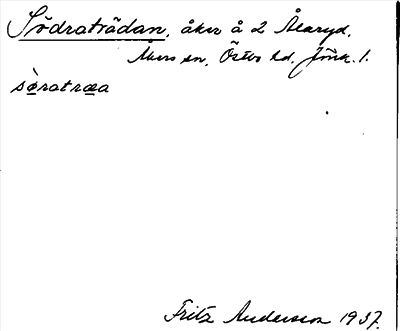 Södraträdan, åker å 2 Ålaryd,
Åkers sn, Östbo hd. Jönk. l.
sø̀ratræa
Fritz Anderson 1937.